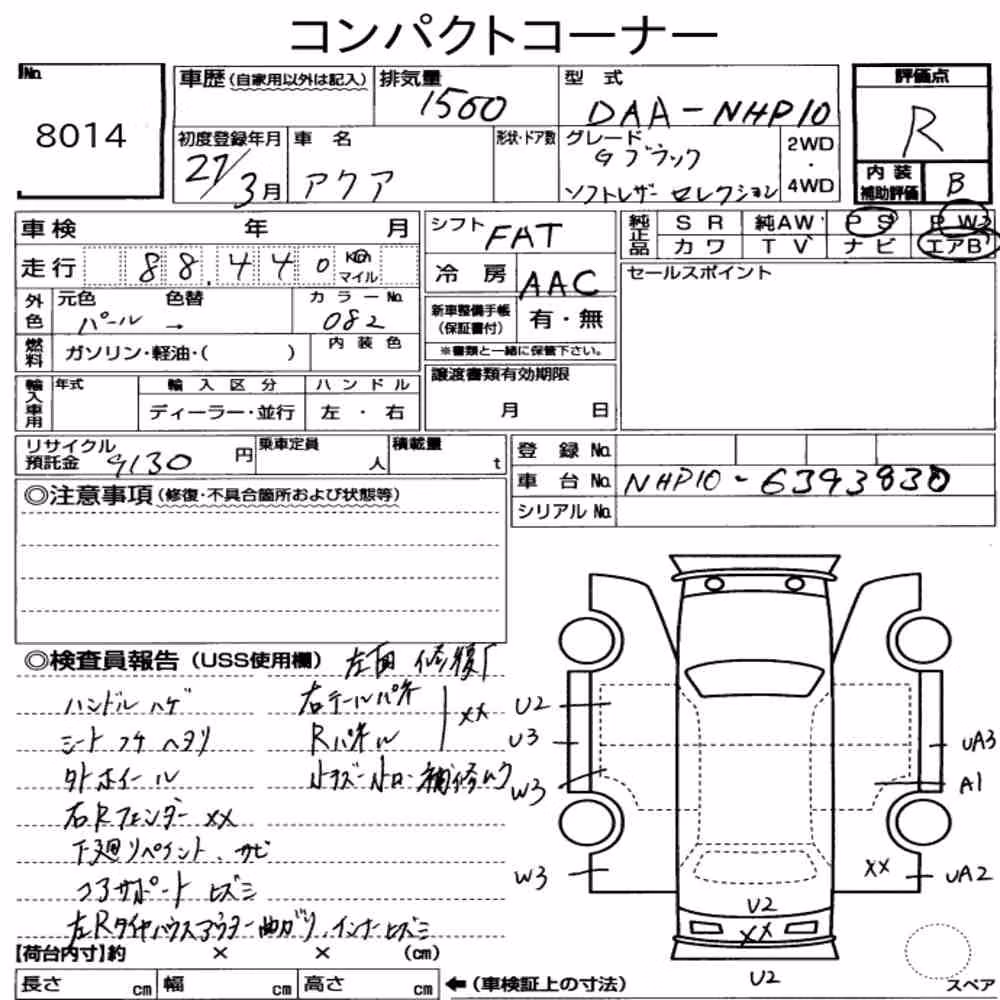 コンパクトコーナー
No.
8014
車歴(自家用以外は記入)
排気量
1500
型 式
DAA-NHP10
評価点
R
内装
補助評価
B
初度登録年月
27/3月
車 名
アクア
形状・ドア数
グレード
Gブラック
ソフトレザー セレクション
2WD
・
4WD
車検 年 月
走行 88,440 km
マイル
シフト FAT
冷 房 AAC
純正品
SR 純AW PS PW
カワ TV ナビ エアB
セールスポイント
外色
元色 色替
パール →
カラーNo.
082
燃料
ガソリン・軽油・( )
内装色
新車整備手帳
(保証書付)
有・無
※書類と一緒に保管下さい。
輸入車用
年式
輸入区分
ディーラー・並行
ハンドル
左 ・ 右
譲渡書類有効期限
月 日
リサイクル
預託金 9130 円
乗車定員
人
積載量
t
登 録 No.
車 台 No. NHP10-6393830
シリアル No.
◎注意事項(修復・不具合箇所および状態等)
◎検査員報告(USS使用欄) 左面 修復
ハンドル ハゲ
シート コゲ ヘタリ
タイホイール
右Rフェンダー XX
下廻リペイント、サビ
コアサポート ヒズミ
左Rタイヤハウスアウター曲ガリ、インナーヒズミ
右テールパネ
Rパネル
XX
小キズ・小ロ・補修ムラ
U2
U3
W3
W3
UA3
A1
XX
UA2
U2
XX
U2
スペア
【荷台内寸】約 × × (cm)
長さ cm 幅 cm 高さ cm ←(車検証上の寸法)